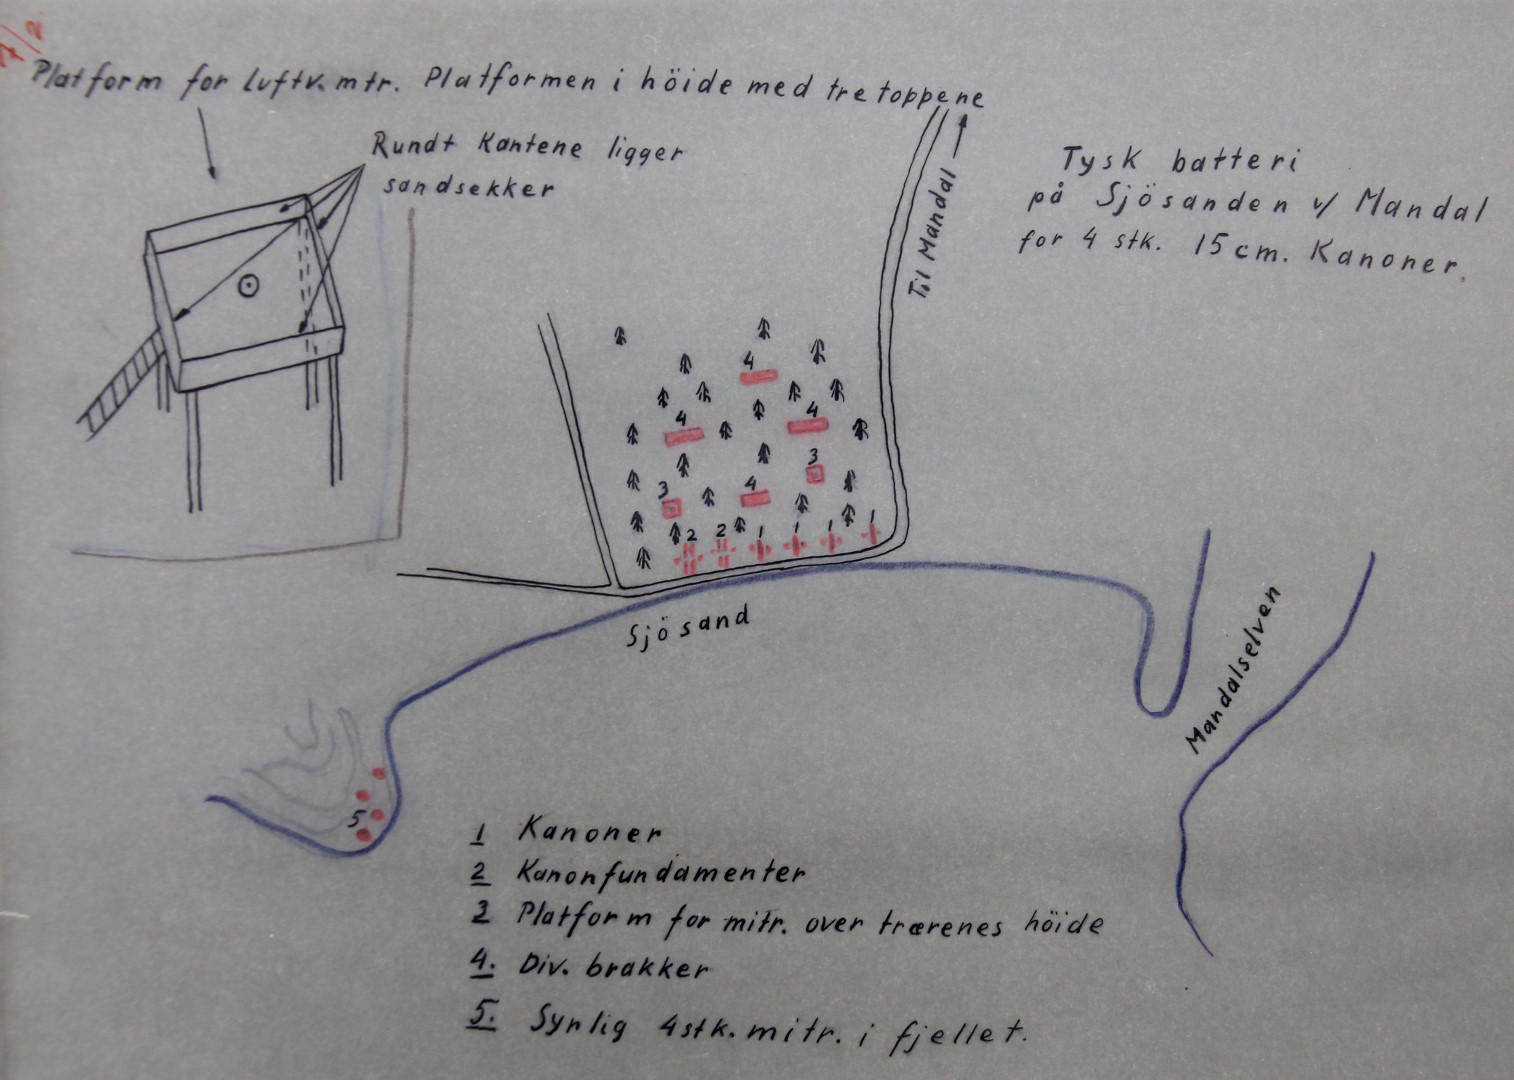 17/2
Platform for luftv. mtr. Platformen i höide med tretoppene
Rundt Kantene ligger
sandsekker
Tysk batteri
på Sjösanden v/ Mandal
for 4 stk. 15 cm. Kanoner.
Til Mandal
4
4
4
3
3
4
2
2
1
1
1
1
Sjösand
Mandalselven
5
1 Kanoner
2 Kanonfundamenter
3 Platform for mitr. over trærenes höide
4. Div. brakker
5. Synlig 4 stk. mitr. i fjellet.